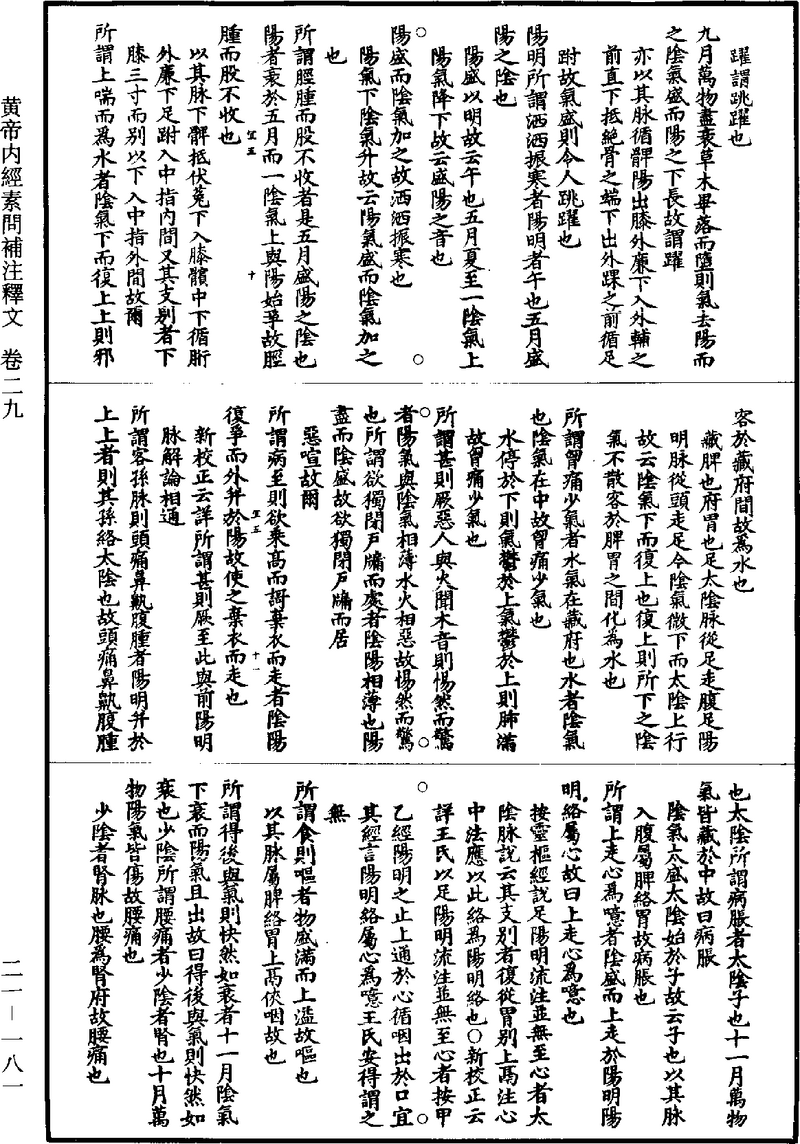 躍謂跳躍也
九月萬物盡衰草木畢落而墮則氣去陽而
之陰氣盛而陽之下長故謂躍
亦以其脉循髀陽出膝外廉下入外輔之
前直下抵絶骨之端下出外踝之前循足
跗故氣盛則令人跳躍也
陽明所謂洒洒振寒者陽明者午也五月盛
陽之陰也
陽盛以明故云午也五月夏至一陰氣上
陽氣降下故云盛陽之音也
陽盛而陰氣加之故洒洒振寒也
陽氣下陰氣升故云陽氣盛而陰氣加之
也
所謂脛腫而股不收者是五月盛陽之陰也
陽者衰於五月而一陰氣上與陽始爭故脛
腫而股不收也
以其脉下髀抵伏菟下入膝髕中下循胻
外廉下足跗入中指内間又其支别者下
膝三寸而别以下入中指外間故爾
所謂上喘而爲水者陰氣下而復上上則邪
客於藏府間故爲水也
藏脾也府胃也足太陰脉從足走腹足陽
明脉從頭走足今陰氣微下而太陰上行
故云陰氣下而復上也復上則所下之陰
氣不散客於脾胃之間化為水也
所謂胷痛少氣者水氣在藏府也水者陰氣
也陰氣在中故胷痛少氣也
水停於下則氣鬱於上氣鬱於上則肺滿
故胷痛少氣也
所謂甚則厥惡人與火聞木音則惕然而驚
者陽氣與陰氣相薄水火相惡故惕然而驚
也所謂欲獨閉戸牖而處者陰陽相薄也陽
盡而陰盛故欲獨閉戸牖而居
惡喧故爾
所謂病至則欲乘高而謌棄衣而走者陰陽
復爭而外并於陽故使之棄衣而走也
新校正云詳所謂甚則厥至此與前陽明
脉解論相通
所謂客孫脉則頭痛鼻鼽腹腫者陽明并於
上上者則其孫絡太陰也故頭痛鼻鼽腹腫
也太陰所謂病脹者太陰子也十一月萬物
氣皆藏於中故曰病脹
陰氣太盛太陰始於子故云子也以其脉
入腹屬脾絡胃故病脹也
所謂上走心爲噫者陰盛而上走於陽明陽
明絡屬心故曰上走心爲噫也
按靈樞經說足陽明流注並無至心者太
陰脉說云其支别者復從胃别上鬲注心
中法應以此絡爲陽明絡也○新校正云
詳王氏以足陽明流注並無至心者按甲
乙經陽明之止上通於心循咽出於口宜
其經言陽明絡屬心爲噫王氏安得謂之
無
所謂食則嘔者物盛滿而上溢故嘔也
以其脉屬脾絡胃上鬲俠咽故也
所謂得後與氣則快然如衰者十一月陰氣
下衰而陽氣且出故曰得後與氣則快然如
衰也少陰所謂腰痛者少陰者腎也十月萬
物陽氣皆傷故腰痛也
少陰者腎脉也腰爲腎府故腰痛也
黄帝内經素問補注釋文　卷二九
二一－一八一